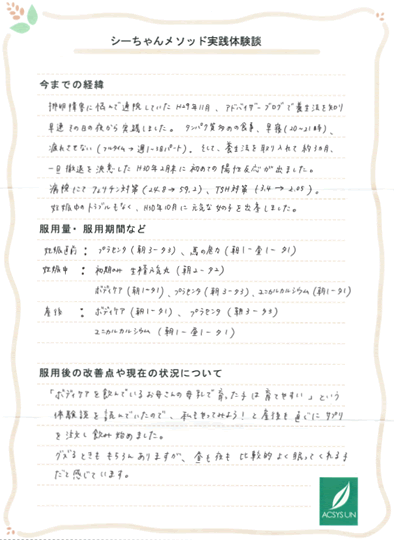 シーちゃんメソッド実践体験談
今までの経緯
排卵障害に悩んで通院していたH29年11月、アドバイザーブログで養生法を知り
早速その日の夜から実践しました。タンパク質多めの食事、早寝(20〜21時)、
疲れさせない(フルタイム→週1-18パート)。そして、養生法を取り入れて約3ヵ月、
一旦撤退を決意したH30年2月末に初めての陽性反応が出ました。
病院にてフェリチン対策(24.8→59.2)、TSH対策(3.4→2.05)。
妊娠中のトラブルもなく、H30年10月に元気な女の子を出産しました。
服用量・服用期間など
妊娠直前：プラセンタ(朝3-夕3)、馬の底力(朝1-昼1-夕1)
妊娠中：初期のみ 生精元気丸(朝2-夕2)
ボディケア(朝1-夕1)、プラセンタ(朝3-夕3)、ユニカルカルシウム(朝1-昼1-夕1)
産後：ボディケア(朝1-夕1)、プラセンタ(朝3-夕3)
ユニカルカルシウム(朝1-昼1-夕1)
服用後の改善点や現在の状況について
「ボディケアを飲んでいるお母さんの母乳で育った子は育てやすい」という
体験談を読んでいたので、私もやってみよう！と産後も直ぐにサプリ
を注文し飲み始めました。
グズるときももちろんありますが、昼も夜も比較的よく眠ってくれる子
だと感じています。
ACSYSUN